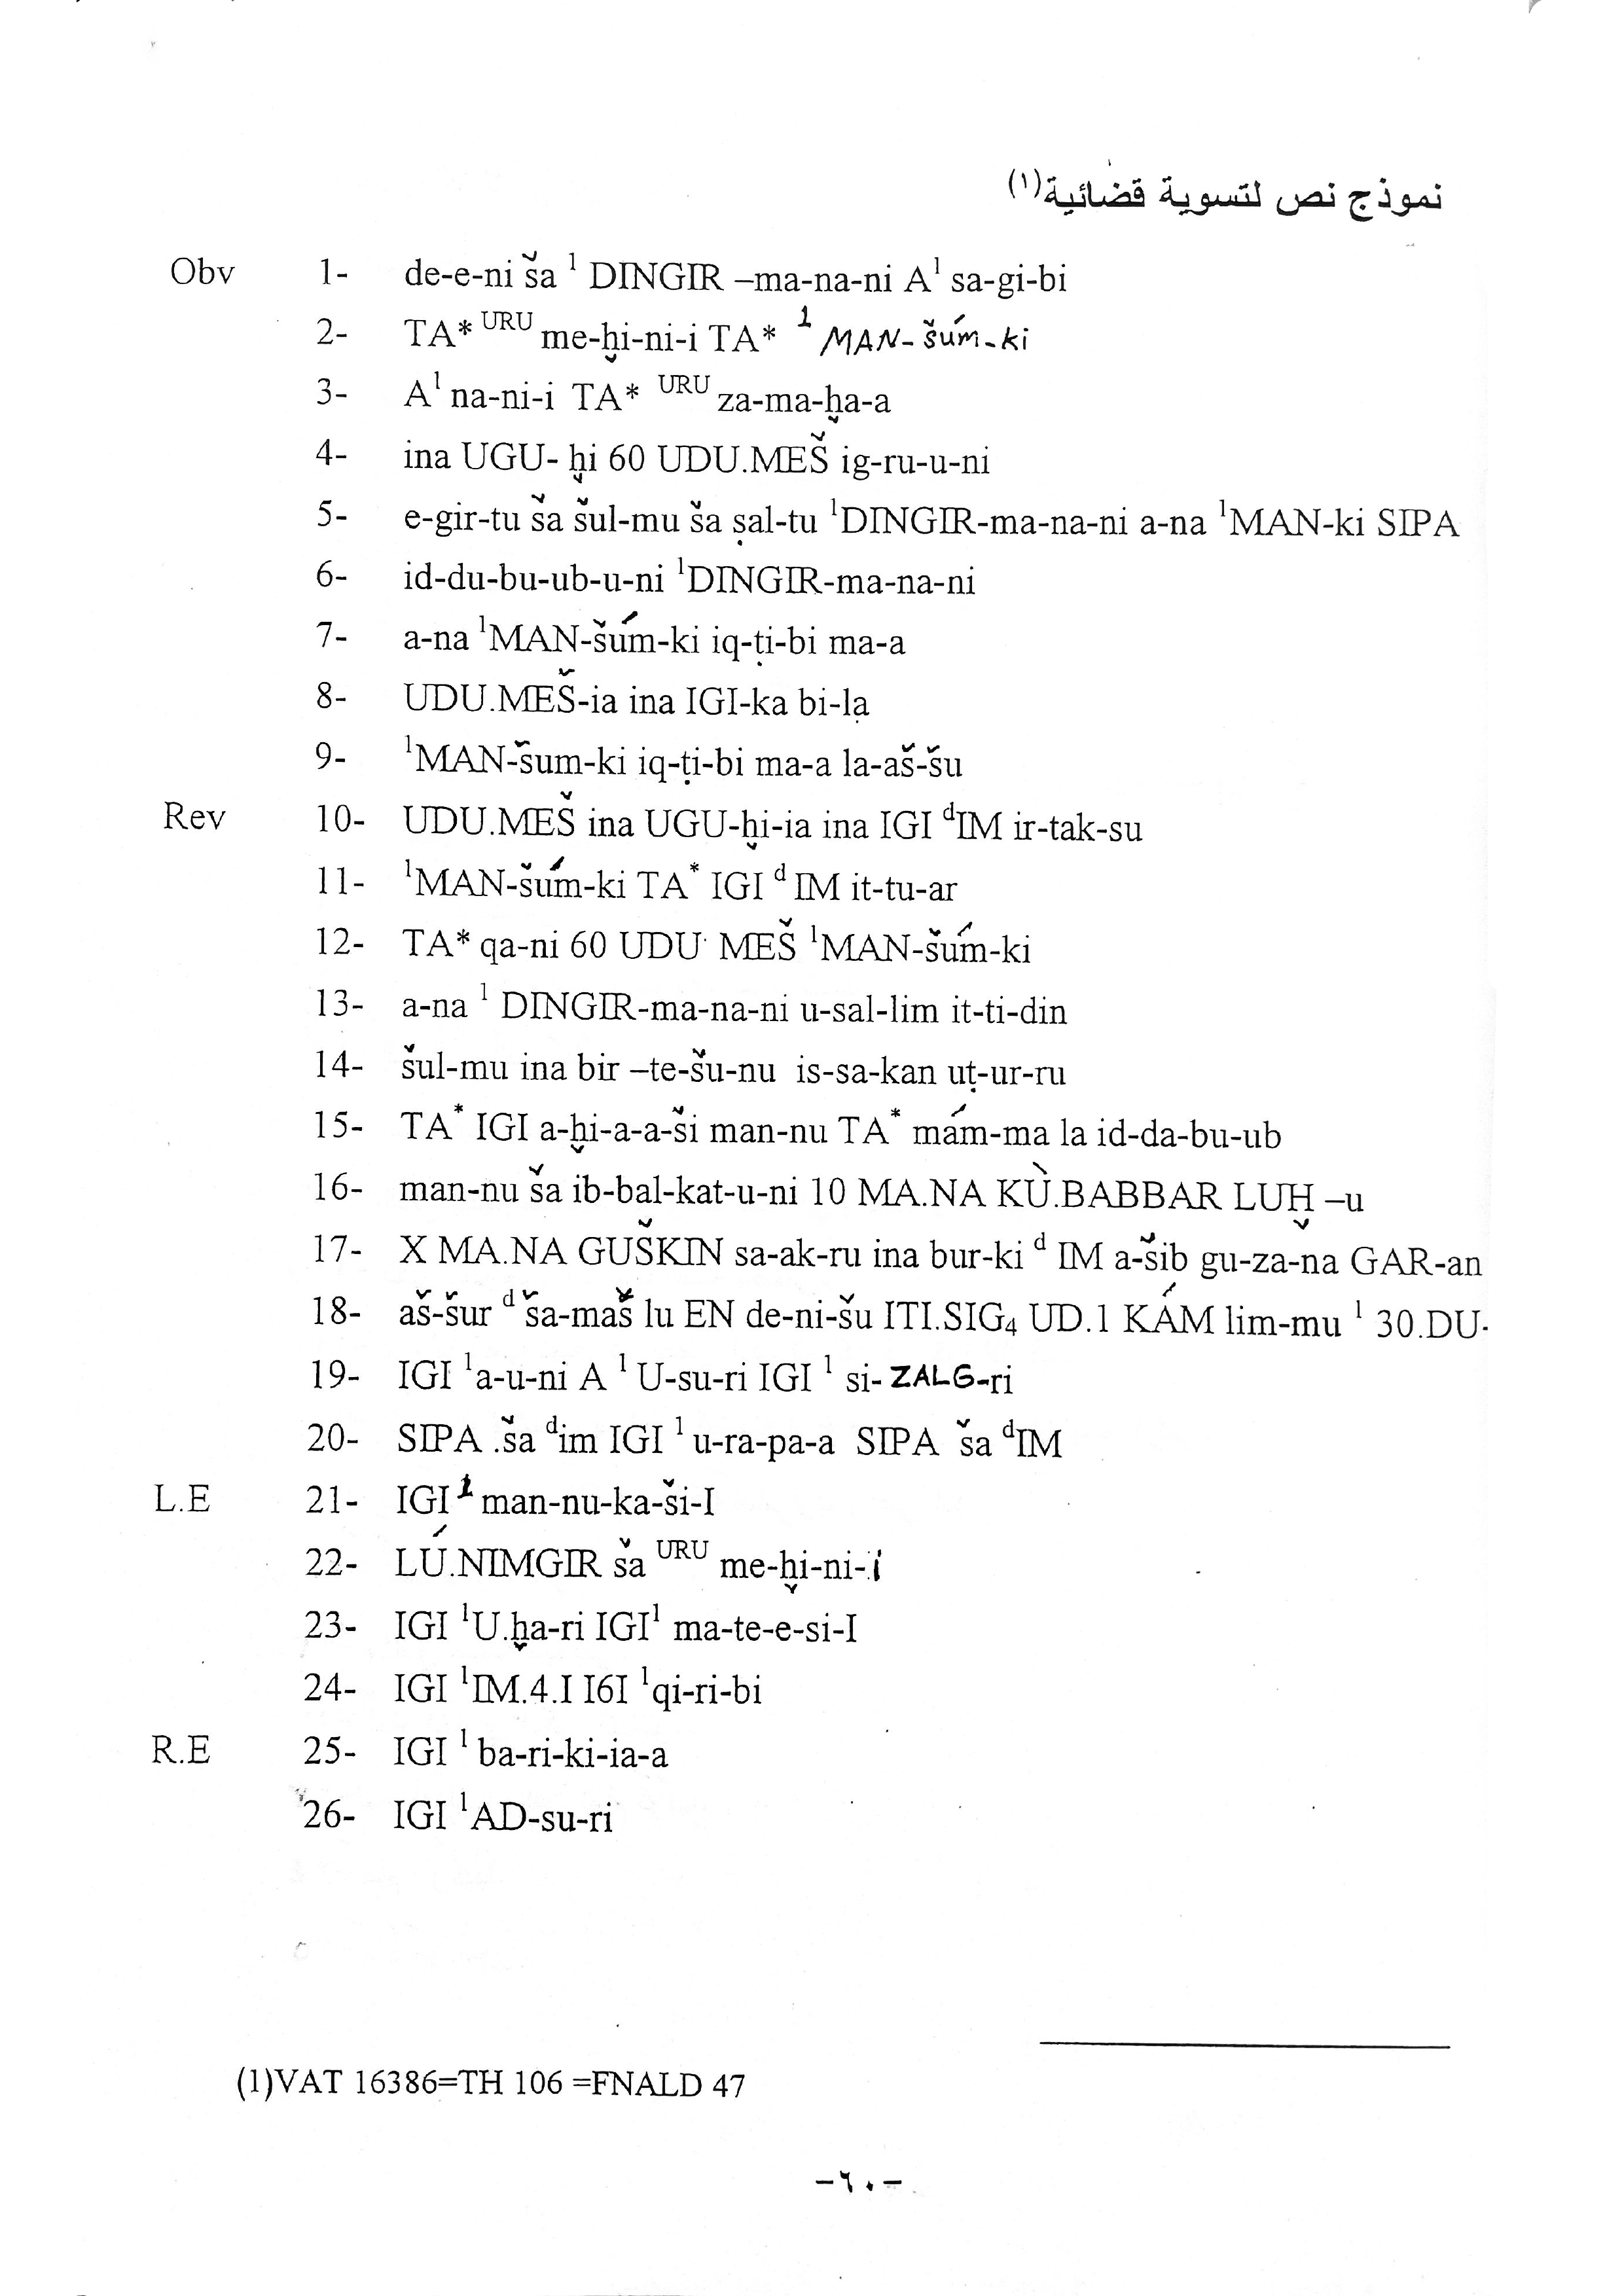 نموذج نص لتسوية قضائية(١)
Obv 1- de-e-ni ša ¹ DINGIR –ma-na-ni A¹ sa-gi-bi
2- TA* ᵁᴿᵁ me-ḫi-ni-i TA* ¹ MAN-šúm-ki
3- A¹ na-ni-i TA* ᵁᴿᵁ za-ma-ḫa-a
4- ina UGU- ḫi 60 UDU.MEŠ ig-ru-u-ni
5- e-gir-tu ša šul-mu ša ṣal-tu ¹DINGIR-ma-na-ni a-na ¹MAN-ki SIPA
6- id-du-bu-ub-u-ni ¹DINGIR-ma-na-ni
7- a-na ¹MAN-šúm-ki iq-ṭi-bi ma-a
8- UDU.MEŠ-ia ina IGI-ka bi-lạ
9- ¹MAN-šum-ki iq-ṭi-bi ma-a la-aš-šu
Rev 10- UDU.MEŠ ina UGU-ḫi-ia ina IGI ᵈIM ir-tak-su
11- ¹MAN-šúm-ki TA* IGI ᵈ IM it-tu-ar
12- TA* qa-ni 60 UDU MEŠ ¹MAN-šúm-ki
13- a-na ¹ DINGIR-ma-na-ni u-sal-lim it-ti-din
14- šul-mu ina bir –te-šu-nu is-sa-kan uṭ-ur-ru
15- TA* IGI a-ḫi-a-a-ši man-nu TA* mám-ma la id-da-bu-ub
16- man-nu ša ib-bal-kat-u-ni 10 MA.NA KÙ.BABBAR LUḪ –u
17- X MA.NA GUŠKIN sa-ak-ru ina bur-ki ᵈ IM a-šib gu-za-na GAR-an
18- aš-šur ᵈ ša-maš lu EN de-ni-šu ITI.SIG₄ UD.1 KÁM lim-mu ¹ 30.DU-
19- IGI ¹a-u-ni A ¹ U-su-ri IGI ¹ si- ZALG-ri
20- SIPA .ša ᵈim IGI ¹ u-ra-pa-a SIPA ša ᵈIM
L.E 21- IGI ¹ man-nu-ka-ši-I
22- LÚ.NIMGIR ša ᵁᴿᵁ me-ḫi-ni-i
23- IGI ¹U.ḫa-ri IGI¹ ma-te-e-si-I
24- IGI ¹IM.4.I I6I ¹qi-ri-bi
R.E 25- IGI ¹ ba-ri-ki-ia-a
26- IGI ¹AD-su-ri
(1)VAT 16386=TH 106 =FNALD 47
-٦٠-